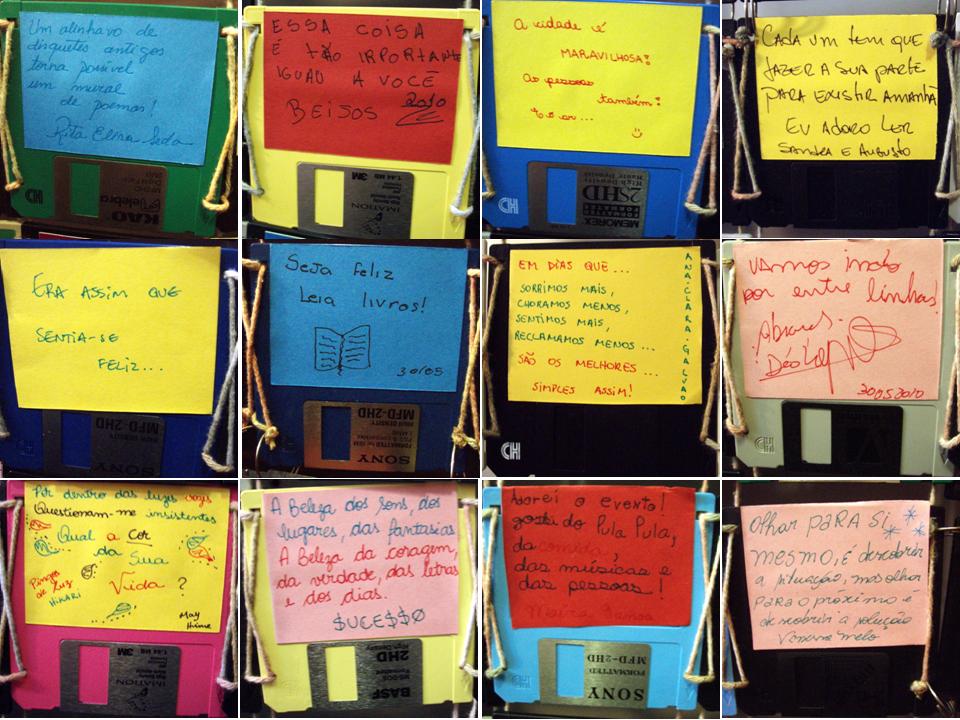 Um alinhavo de
disquetes antigos
torna possível
um mural
de poemas!
Rita Elisa Seda
KAO
Telebra
MF2HD
ESSA COISA
É tão IMPORTANTE
IGUAU A VOCÊ
BEIJOS 2010
1.44 MB 3M
IMATION
A cidade é
MARAVILHOSA!!
As pessoas
também!
E o ar...
MEMOREX
2SHD
High Density
CADA UM tem que
fazer a sua parte
para existir amanhã
EU ADORO LER
SANDRA E AUGUSTO
ERA ASSIM QUE
SENTIA-SE
FELIZ...
MFD-2HD
HIGH DENSITY
Seja feliz
Leia livros!
30/05
SONY
MFD-2HD
EM DIAS QUE...
SORRIMOS MAIS,
CHORAMOS MENOS,
SENTIMOS MAIS,
RECLAMAMOS MENOS...
SÃO OS MELHORES...
SIMPLES ASSIM!
ANA·CLARA·GALVÃO
vamos indo
por entre linhas!
Abraços.
30052010
Por dentro das luzes vozes
Questionam-me insistentes
Qual a Cor
da Sua
Vida ?
Pingos
de Luz
HIKARI
May
1.44 MB 3M
IMATION
A Beleza dos sons, dos
lugares, das fantasias
A Beleza da coragem,
da verdade, das letras
e dos dias.
$UCE$$O
BASF
2HD
Adorei o evento!
gostei do Pula Pula,
da comida,
das músicas e
das pessoas!
SONY
MFD-2HD
Olhar para si
mesmo, é descobrir
a situação, mas olhar
para o próximo é
descobrir a solução